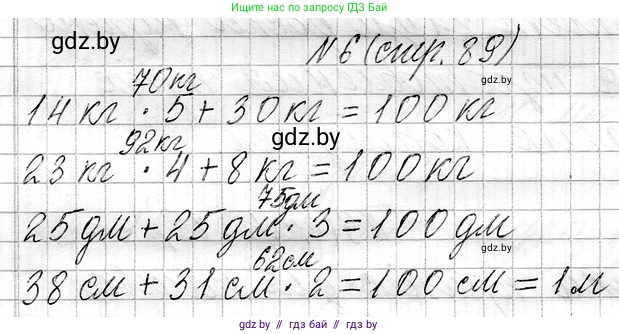 Ищите нас по запросу GDZ.BY
gdz.by
№6 (стр. 89)
gdz.by
70 кг
14 кг · 5 + 30 кг = 100 кг
gdz.by
92 кг
23 кг · 4 + 8 кг = 100 кг
75 дм
25 дм + 25 дм · 3 = 100 дм
gdz.by
62 см
38 см + 31 см · 2 = 100 см = 1 м
gdz.by // гдз бай // гдз.by // gdz бай